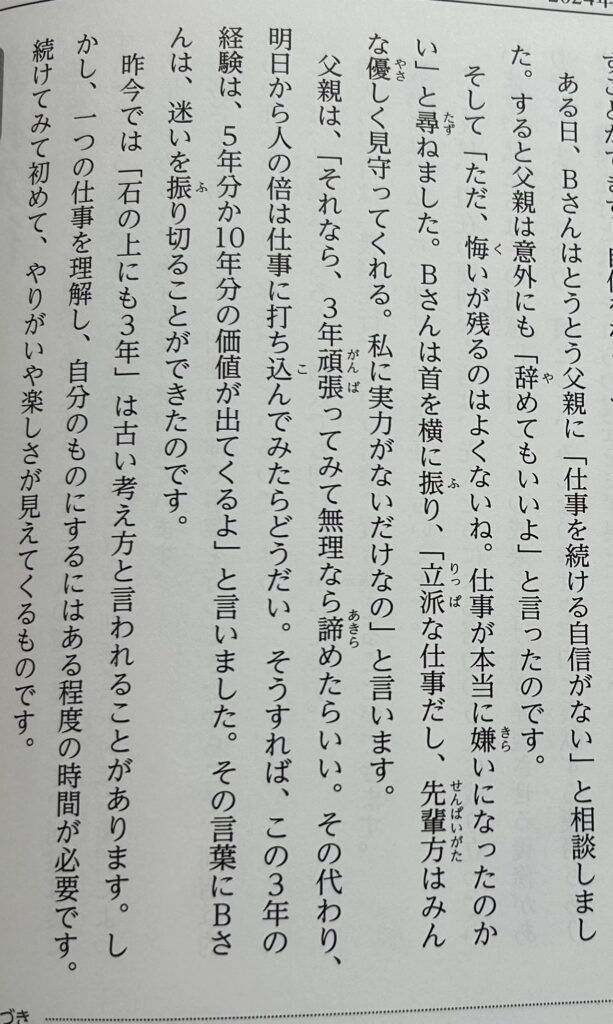 2024年
ある日、Bさんはとうとう父親に「仕事を続ける自信がない」と相談しまし
た。すると父親は意外にも「辞めてもいいよ」と言ったのです。
そして「ただ、悔いが残るのはよくないね。仕事が本当に嫌いになったのか
い」と尋ねました。Bさんは首を横に振り、「立派な仕事だし、先輩方はみん
な優しく見守ってくれる。私に実力がないだけなの」と言います。
父親は、「それなら、3年頑張ってみて無理なら諦めたらいい。その代わり、
明日から人の倍は仕事に打ち込んでみたらどうだい。そうすれば、この3年の
経験は、5年分か10年分の価値が出てくるよ」と言いました。その言葉にBさ
んは、迷いを振り切ることができたのです。
昨今では「石の上にも3年」は古い考え方と言われることがあります。し
かし、一つの仕事を理解し、自分のものにするにはある程度の時間が必要です。
続けてみて初めて、やりがいや楽しさが見えてくるものです。
づき